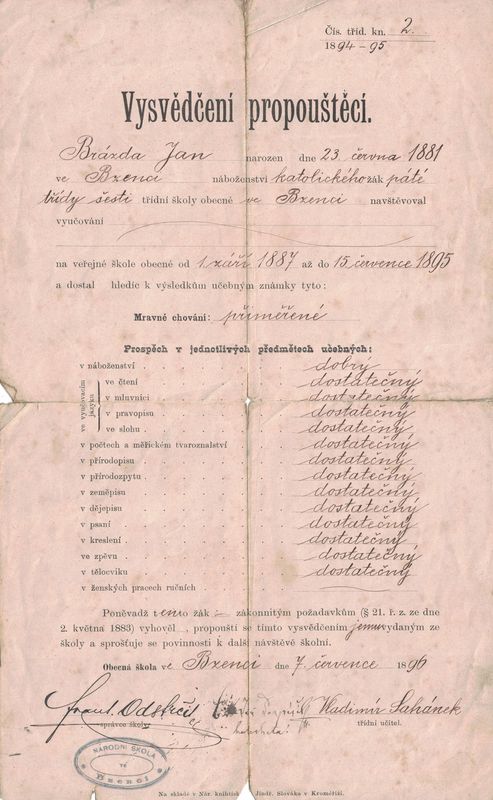 Čís. tříd. kn. 2.
1894-95
Vysvědčení propouštěcí.
Brázda Jan narozen dne 23. června 1881
ve Bzenci náboženství katolického žák páté
třídy šesti třídní školy obecné ve Bzenci navštěvoval
vyučování
na veřejné škole obecné od 1. září 1887 až do 15. července 1895
a dostal hledíc k výsledkům učebným známky tyto:
Mravné chování: přiměřené
Prospěch v jednotlivých předmětech učebných:
v náboženství dobrý
ve vyučovacím jazyku
ve čtení dostatečný
v mluvnici dostatečný
v pravopisu dostatečný
ve slohu dostatečný
v počtech a měřickém tvaroznalství dostatečný
v přírodopisu dostatečný
v přírodozpytu dostatečný
v zeměpisu dostatečný
v dějepisu dostatečný
v psaní dostatečný
v kreslení dostatečný
ve zpěvu dostatečný
v tělocviku dostatečný
v ženských pracech ručních
Poněvadž tento žák zákonnitým požadavkům (§ 21. ř. z. ze dne
2. května 1883) vyhověl, propouští se tímto vysvědčením jemu vydaným ze
školy a sprošťuje se povinnosti k další návštěvě školní.
Obecná škola ve Bzenci dne 7. července 1896
Frant. Odstrčil Vladimír Sahánek
správce školy. třídní učitel.
NÁRODNÍ ŠKOLA
ve
Bzenci
Na skladě v Nár. knihtisk Jindř. Slováka v Kroměříži.